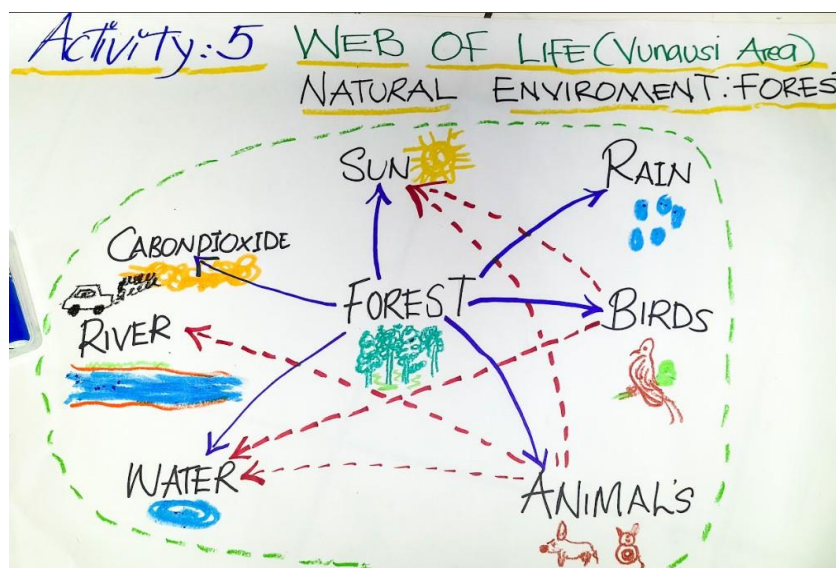 Activity:5 WEB OF LIFE (Vunausi Area)
NATURAL ENVIROMENT:FORES
SUN
RAIN
CABONDIOXIDE
FOREST
RIVER
BIRDS
WATER
ANIMAL'S